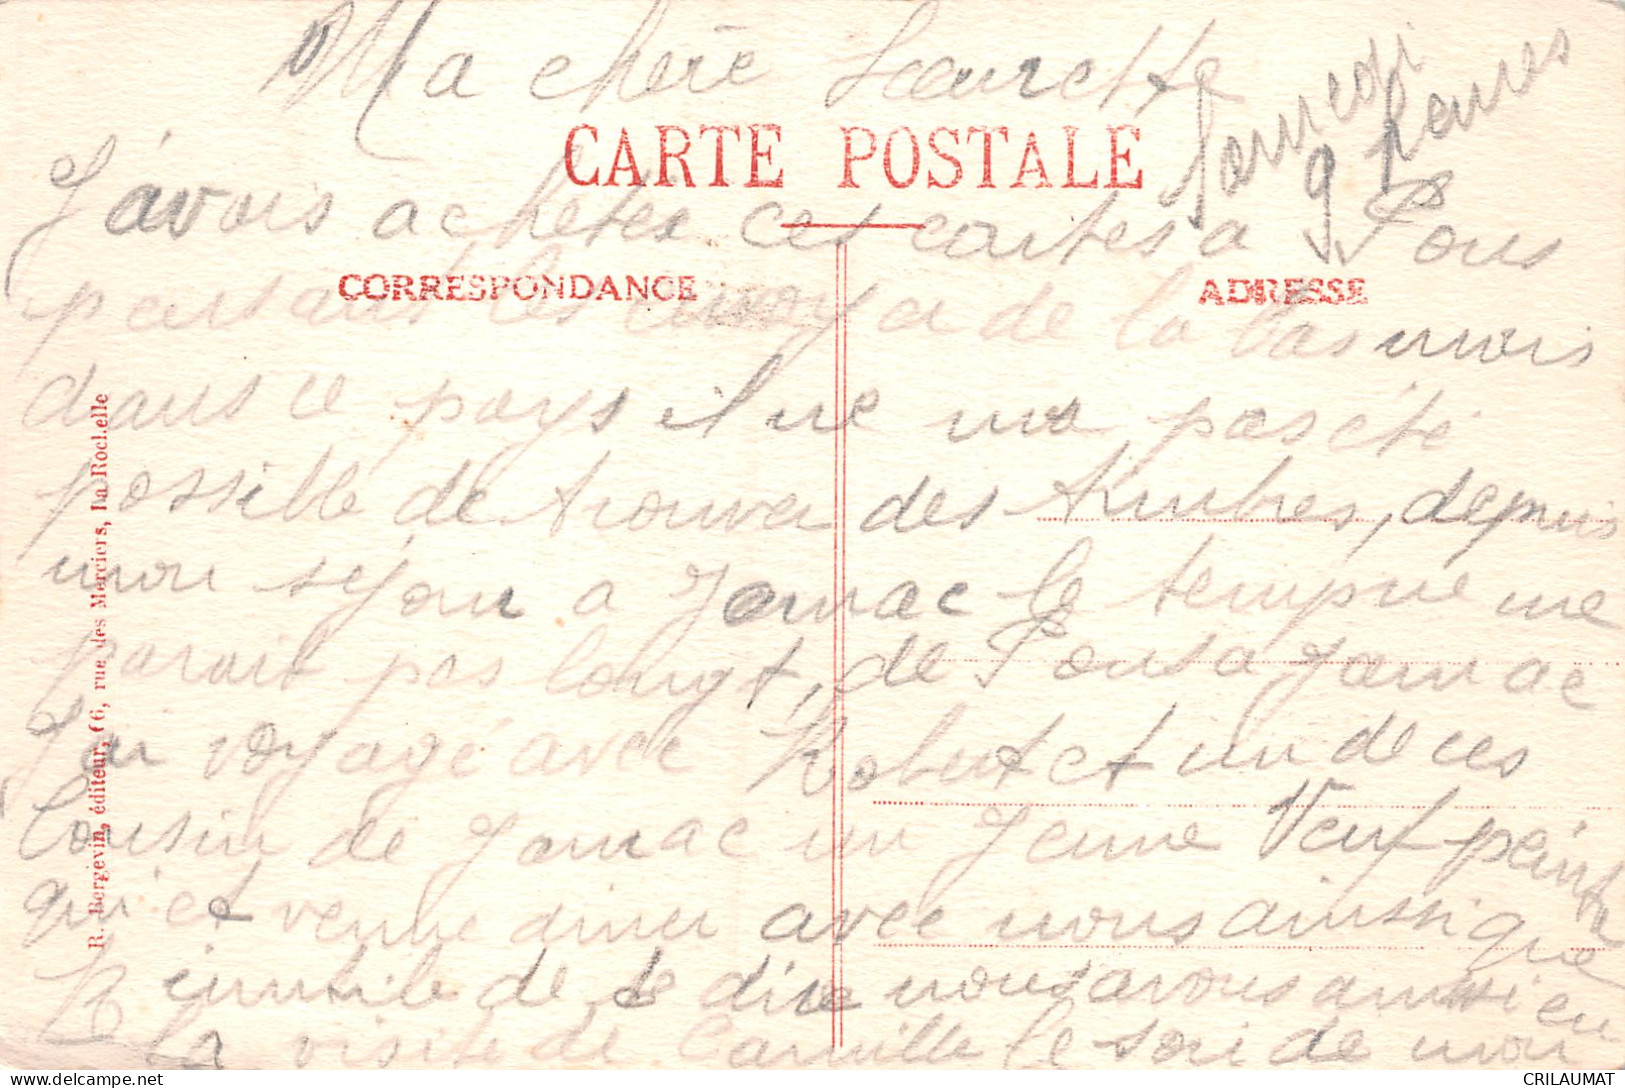 Ma chère Soeurette
Samedi
9 heures
CARTE POSTALE
J'avais achetés ces cartes a Pons
CORRESPONDANCE
ADRESSE
pensant les envoyer de la bas mais
dans ce pays il ne ma pas été
possible de trouver des timbres, depuis
mon séjour a Jarnac le temps ne me
parait pas long, de Pons a Jarnac
J'ai voyagé avec Robert et un de ces
Cousin de Jarnac un jeune Veuf peintre
qui et venue diner avec nous ainsi que
R inutile de te dire nous avous aussi eu
la visite de Camille le soir de mon
R. Bergevin, éditeur, 66, rue des Merciers, La Rochelle
CRILAUMAT